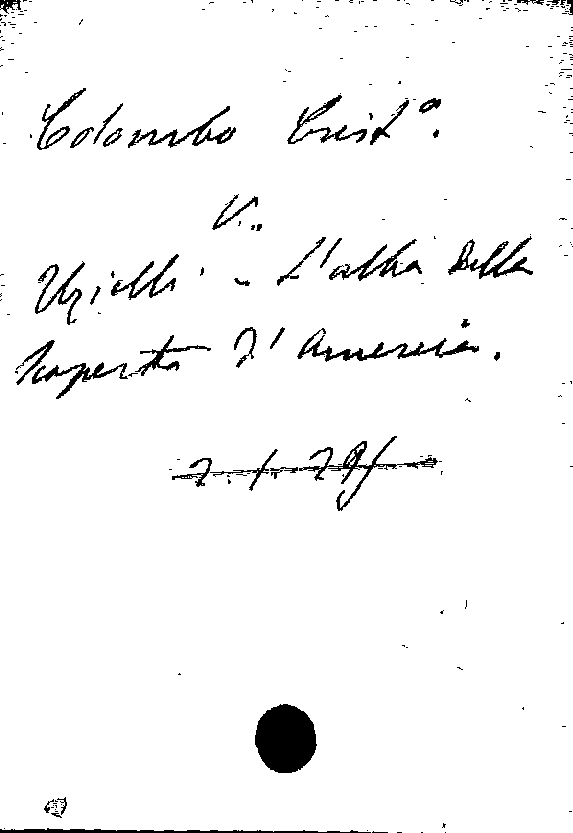 Colombo Crist.º
V..
Uzielli - L'alba della
scoperta d'America.